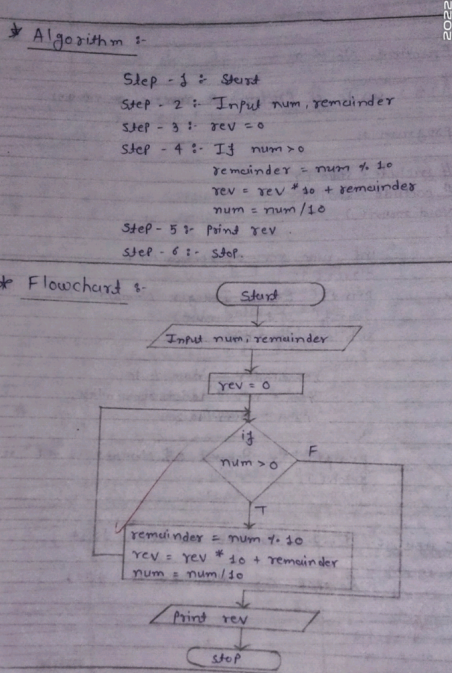 2022
* Algorithm :-
Step - 1 :- Start
Step - 2 :- Input num, remainder
Step - 3 :- rev = 0
Step - 4 :- If num > 0
remainder = num % 10
rev = rev * 10 + remainder
num = num / 10
Step - 5 :- Print rev
Step - 6 :- Stop.
* Flowchart :-
Start
Input num, remainder
rev = 0
if
num > 0
F
T
remainder = num % 10
rev = rev * 10 + remainder
num = num / 10
Print rev
Stop